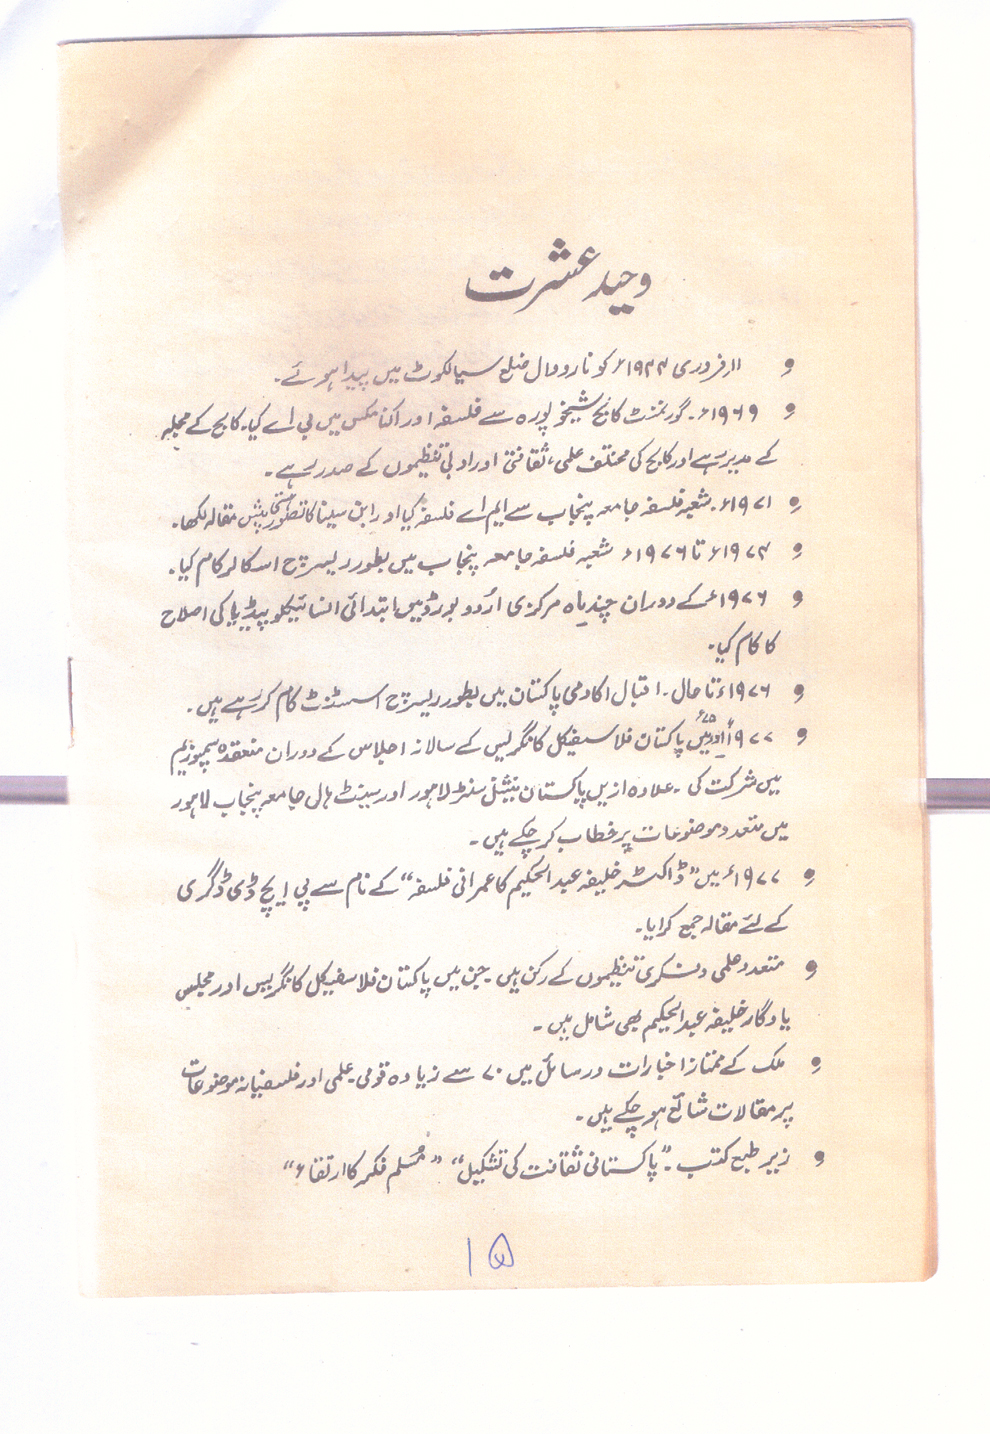 وحید عشرت
• ۱۱ فروری ۱۹۴۴ء کو نارووال ضلع سیالکوٹ میں پیدا ہوئے۔
• ۱۹۶۹ء۔ گورنمنٹ کالج شیخوپورہ سے فلسفہ اور اکنامکس میں بی اے کیا۔ کالج کے مجلہ
کے مدیر رہے اور کالج کی مختلف علمی، ثقافتی اور ادبی تنظیموں کے صدر رہے۔
• ۱۹۷۱ء۔ شعبہ فلسفہ جامعہ پنجاب سے ایم اے فلسفہ کیا اور ابن سینا کا تصور پر مقالہ لکھا۔
• ۱۹۷۴ء تا ۱۹۷۶ء شعبہ فلسفہ جامعہ پنجاب میں بطور ریسرچ اسکالر کام کیا۔
• ۱۹۷۶ء کے دوران چند ماہ مرکزی اُردو بورڈ میں ابتدائی انسائیکلوپیڈیا کی اصلاح
کا کام کیا۔
• ۱۹۷۶ء تا حال۔ اقبال اکادمی پاکستان میں بطور ریسرچ اسسٹنٹ کام کر رہے ہیں۔
• ۱۹۷۷ء اور ۷۵ء میں پاکستان فلاسفیکل کانگریس کے سالانہ اجلاس کے دوران منعقدہ سمپوزیم
میں شرکت کی۔ علاوہ ازیں پاکستان نیشنل سنٹر لاہور اور سینٹ ہال جامعہ پنجاب لاہور
میں متعدد موضوعات پر خطاب کر چکے ہیں۔
• ۱۹۷۷ء میں "ڈاکٹر خلیفہ عبدالحکیم کا عمرانی فلسفہ" کے نام سے پی ایچ ڈی ڈگری
کے لئے مقالہ جمع کرایا۔
• متعدد علمی و فکری تنظیموں کے رکن ہیں جن میں پاکستان فلاسفیکل کانگریس اور مجلس
یادگار خلیفہ عبدالحکیم بھی شامل ہیں۔
• ملک کے ممتاز اخبارات و رسائل میں ۷۰ سے زیادہ قومی۔ علمی اور فلسفیانہ موضوعات
پر مقالات شائع ہو چکے ہیں۔
• زیر طبع کتب۔ "پاکستانی ثقافت کی تشکیل" "مُسلم فکر کا ارتقاء"
۱۵